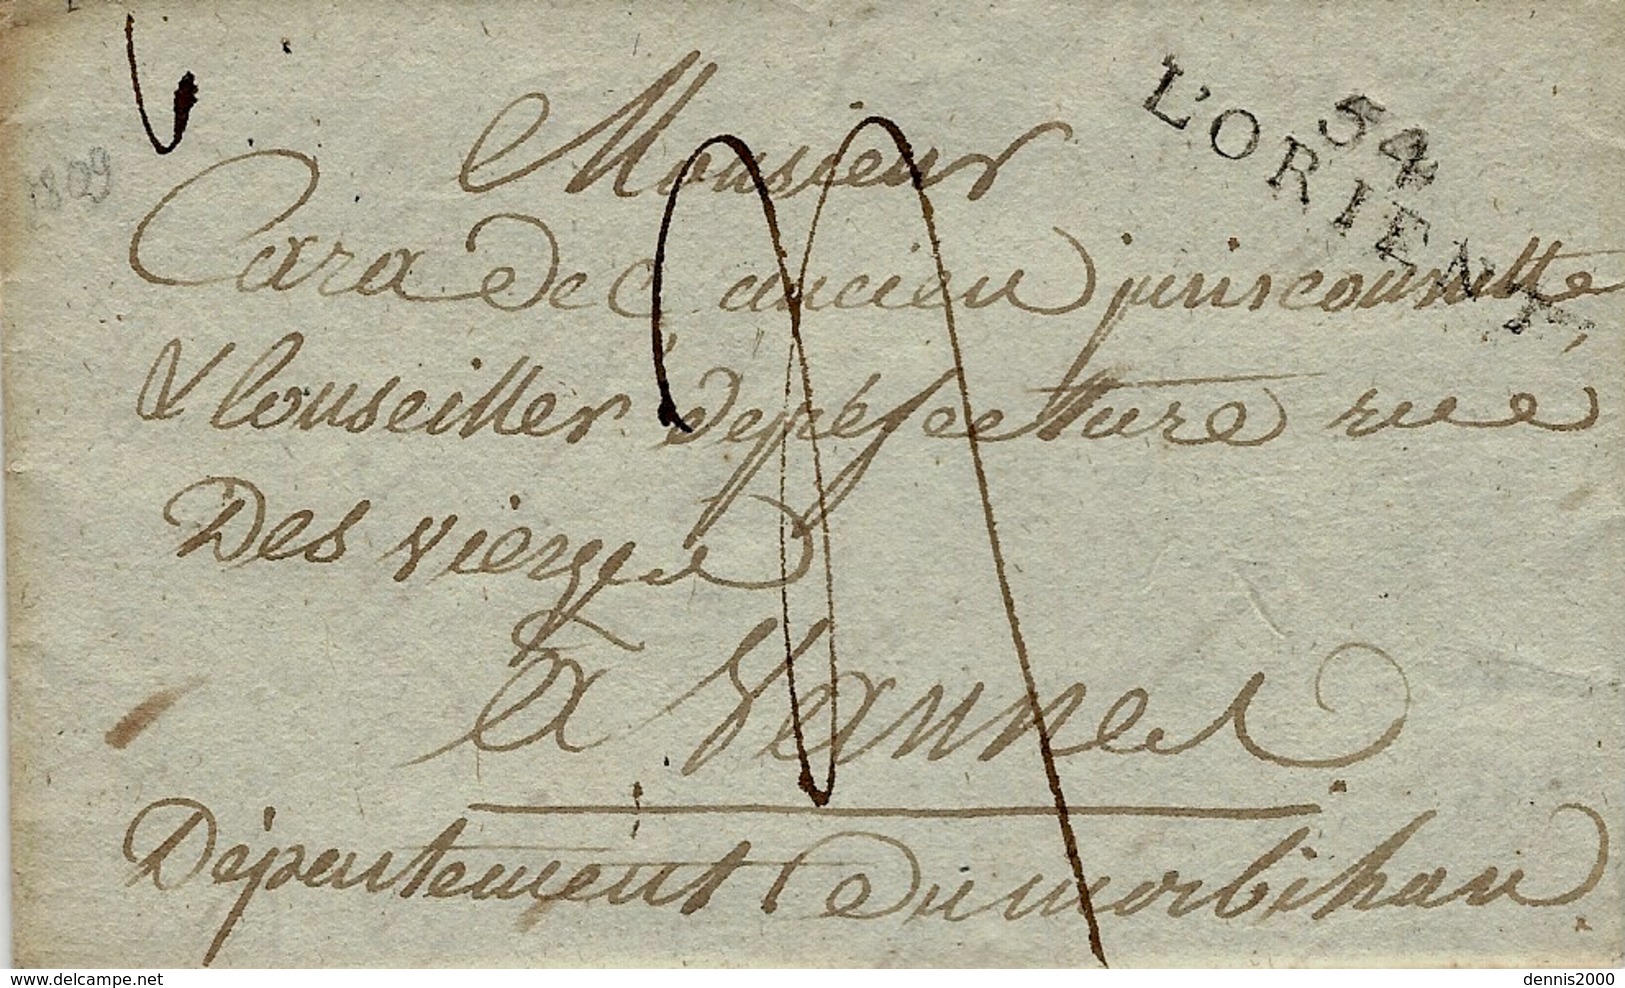 1809
54
L'ORIENT
Monsieur
Cara de ancien jurisconsulte
& Conseiller de préfecture rue
Des vierges
à Vannes
Département du morbihan
dennis2000